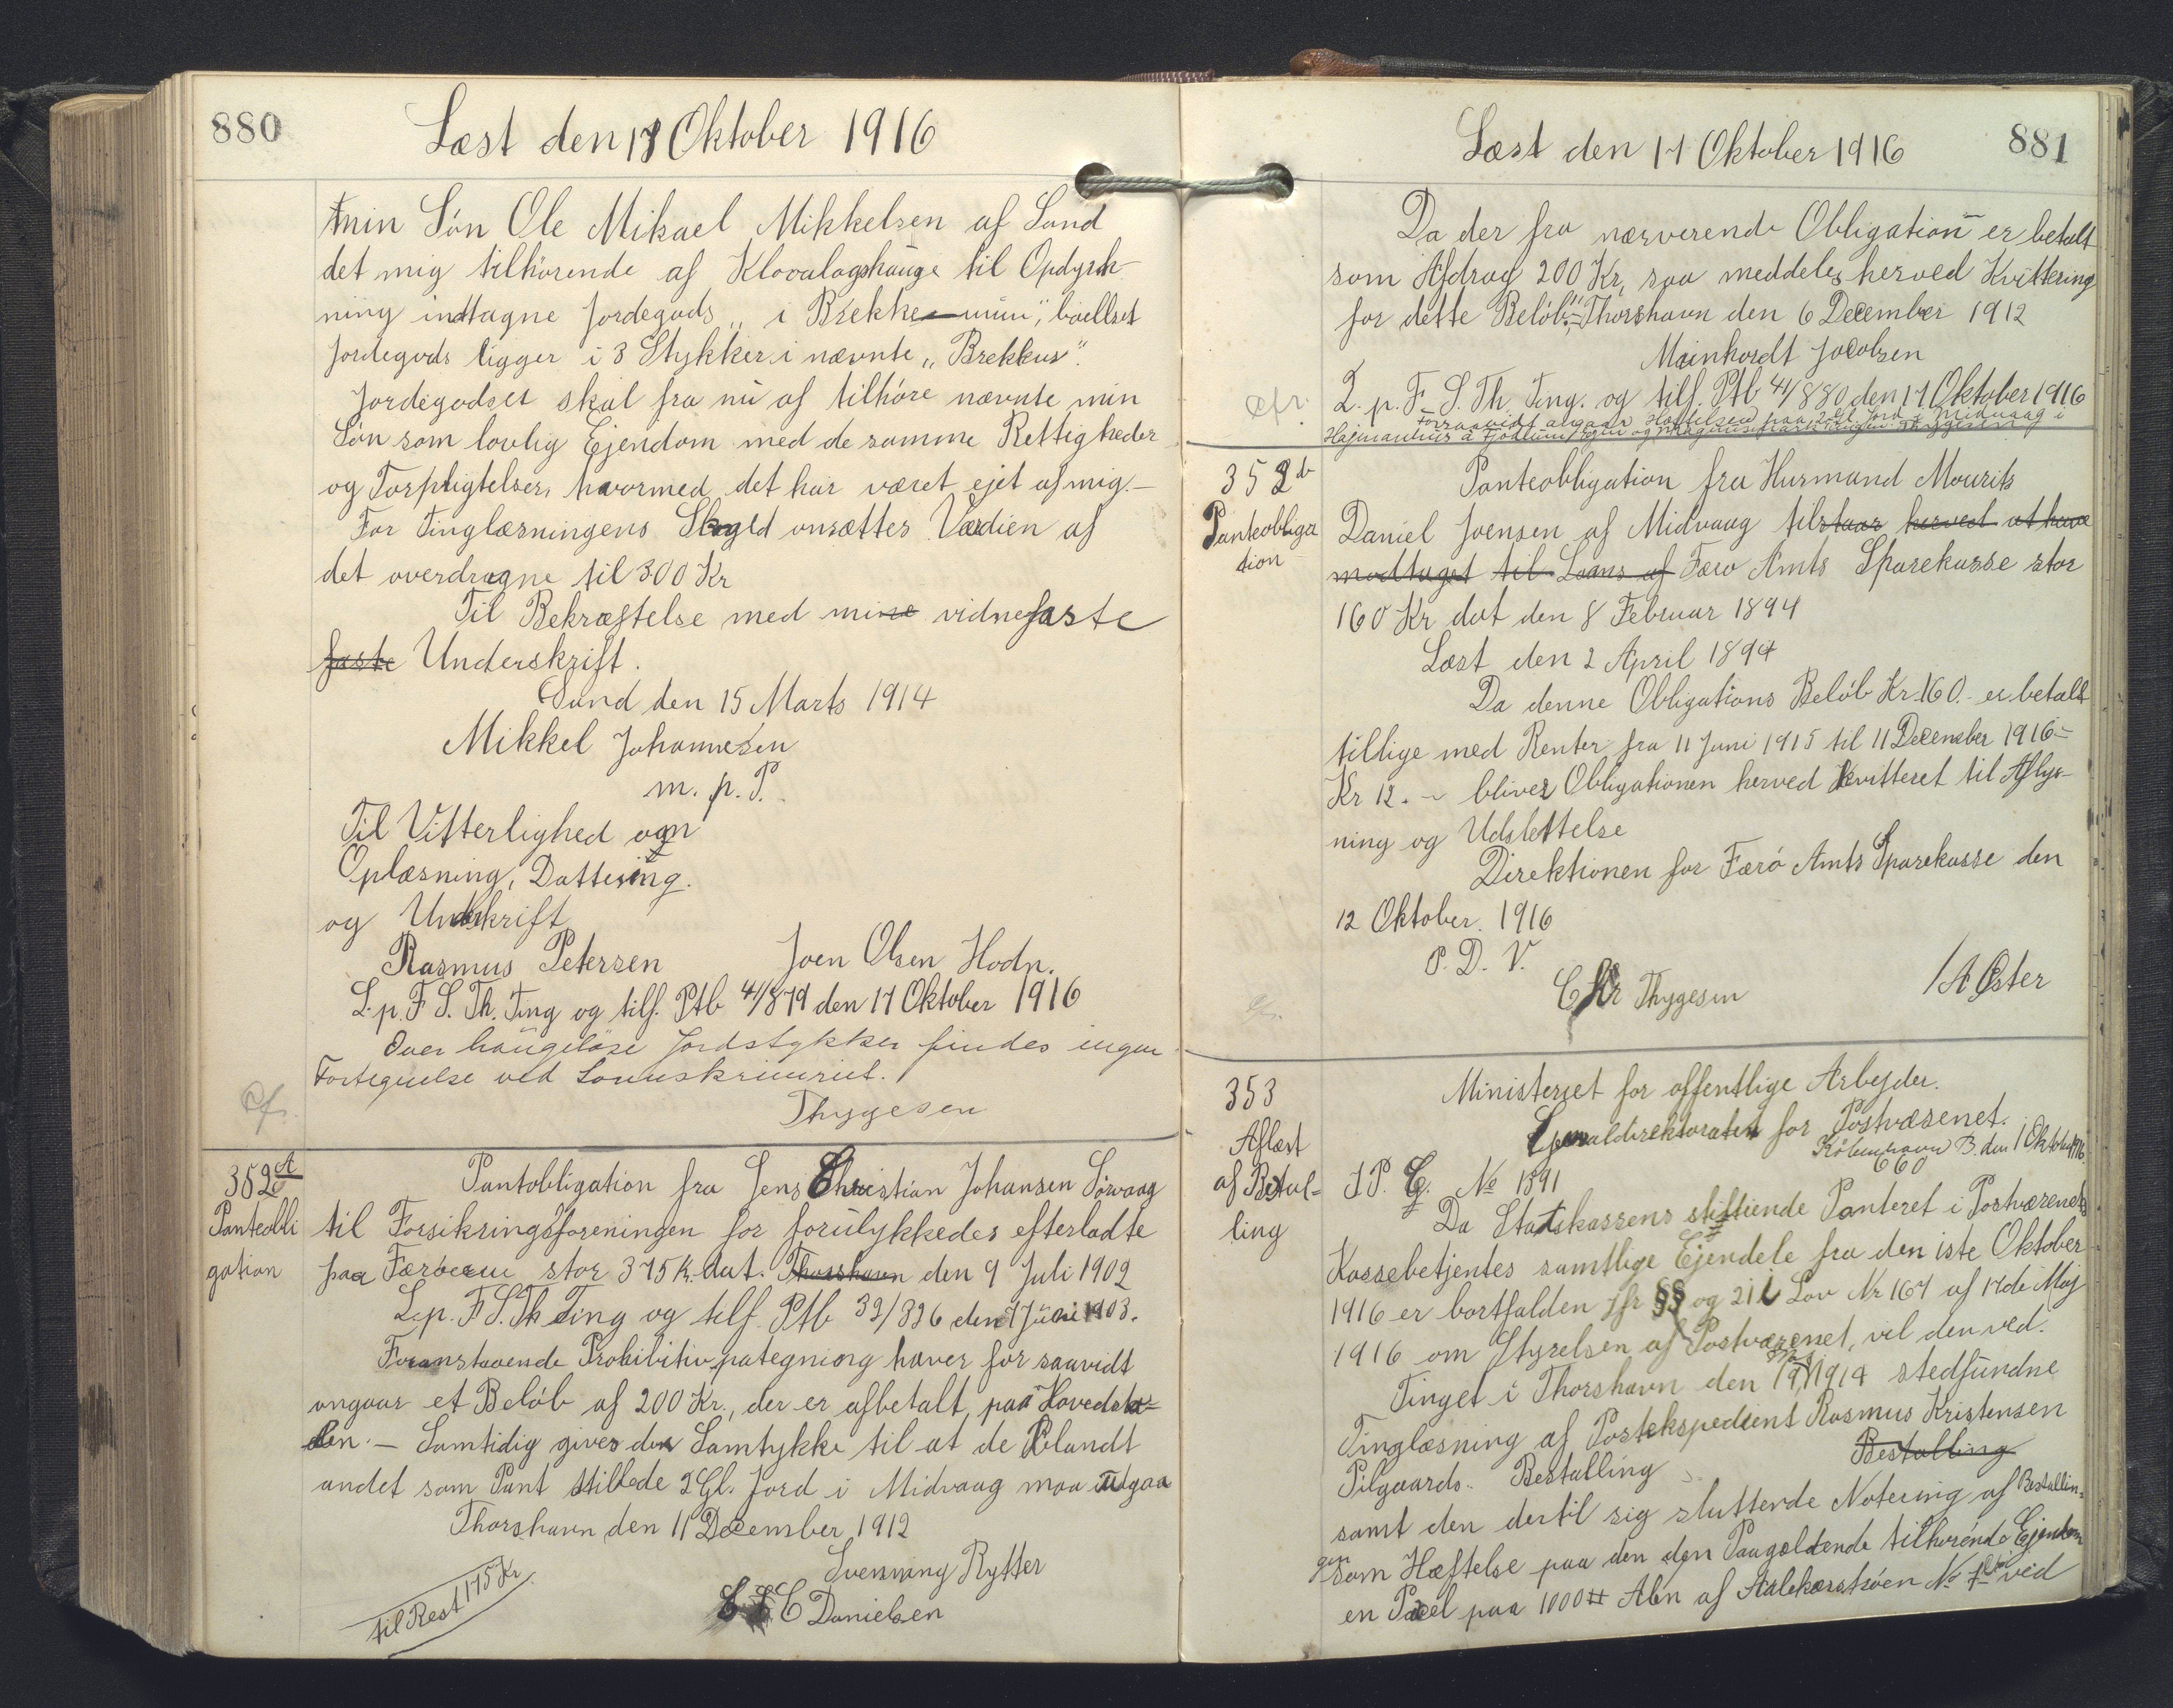 880
Læst den 17 Oktober 1916
min Sön Ole Mikael Mikkelsen af Sand
det mig tilhörende af Klovalagshauge til Opdyrk-
ning indtagne Jordegods „i Brekke-
Jordegods ligger i 3 Stykker i nævnte „Brekkus".
Jordegodset skal fra nu af tilhöre nævnte min
Sön som lovlig Ejendom med de samme Rettigheder
og Forpligtelser, hvormed det har været ejet af mig.-
For Tinglæsningens Skyld ansættes Værdien af
det overdragne til 300 Kr
Til Bekræftelse med mine vidnefaste
faste Underskrift.
Sand den 15 Marts 1914
Mikkel Johannesen
m. p. P.
Til Vitterlighed om
Oplæsning, Dattering.
og Underskrift
Rasmus Petersen Joen Olsen Hodn.
L. p. F S. Th. Ting og tilf. Ptb 41/879 den 17 Oktober 1916
Over haugeløse Jordstykker findes ingen
Fortegnelse ved Sorenskriveriet.
Cfr.
Thygesen
352 A
Panteobli
gation
Pantobligation fra Jens Christian Johansen Sörvaag
til Forsikringsforeningen for forulykkedes efterladte
paa Færöerne stor 375 K. dat. Thorshavn den 9 Juli 1902
L. p. F S. Th Ting og tilf. Ptb 32/326 den 7 Juni 1903.
Foranstaaende Prohibitivpategning hæver for saavidt
angaar et Belöb af 200 Kr., der er afbetalt, paa Hovedsto-
len. - Samtidig gives der Samtykke til at de blandt
andet som Pant stillede 2 Gl. Jord i Midvaag maa udgaa
Thorshavn den 11 December 1912
Svenning Rytter
C Danielsen
til Rest 175 Kr.
881
Læst den 17 Oktober 1916
Da der fra nærverende Obligation er betalt
som Afdrag 200 Kr, saa meddeles herved Kvittering
for dette Belöb, Thorshavn den 6 December 1912
Mainhardt Jacobsen
Cfr.
L. p. F S. Th. Ting. og tilf. Ptb 41/880 den 17 Oktober 1916
forsaavidt angaar Hæftelsen paa 2 Gl. Jord i Midvaag i
352 b
Panteobliga
tion
Panteobligation fra Husmand Mourits
Daniel Joensen af Midvaag tilstaar herved at have
modtaget til Laans af Færo Amts Sparekasse stor
160 Kr dat den 8 Februar 1894
Læst den 2 April 1894
Da denne Obligations Belöb Kr. 160.- er betalt
tillige med Renter fra 11 Juni 1915 til 11 December 1916-
Kr 12. - bliver Obligationen herved kvitteret til Aflys-
ning og Udslettelse
Direktionen for Færö Amts Sparekasse den
12 Oktober. 1916
P. D. V.
Chr Thygesen / A Øster
Cfr.
353
Aflæst
af Bestal-
ling
Ministeriet for offentlige Arbejder.
Generaldirektoratet for Postvæsenet.
København B. den 1 Oktober 1916.
660
J. P. G. No 1391
Da Statskassens stiltiende Panteret i Postvæsenets
Kassebetjentes samtlige Ejendele fra den iste Oktober
1916 er bortfalden jfr §§ og 21 i Lov Nr 167 af 17de Maj
1916 om Styrelsen af Postvæsenet, vil den ved.
Tinget i Thorshavn den 1914 stedfundne
Tinglæsning af Postekspedient Rasmus Kristensen
Pilgaards.. Bestalling Bestalling
samt den dertil sig sluttende Notering af Bestallin-
gen som Hæftelse paa den den Paagældende tilhørende Ejendom
en Parcel paa 1000 Aln af Aalekærstrøen No ved